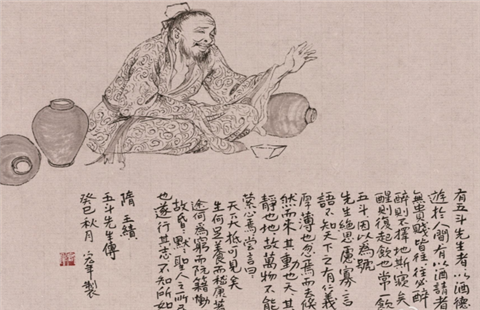 有五斗先生者以酒德
遊於人間有以酒請者
無貴賤皆往往必醉
醉則不擇地斯寢矣
醒則復起飲也常一飲
五斗因以為號
先生絕思慮寡言
語不知天下之有仁義
厚薄也忽焉而去倏
然而來其動也天其
靜也地故萬物不能
縈心焉嘗言曰
天下大抵可見矣
生何足養而嵇康著
途何為窮而阮籍慟
故昏〻默〻聖人之所
也遂行其志不知所如
隋 王績
五斗先生傳
癸巳秋月 年製